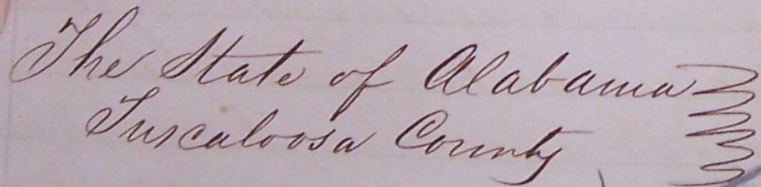 The State of Alabama
Tuscaloosa County